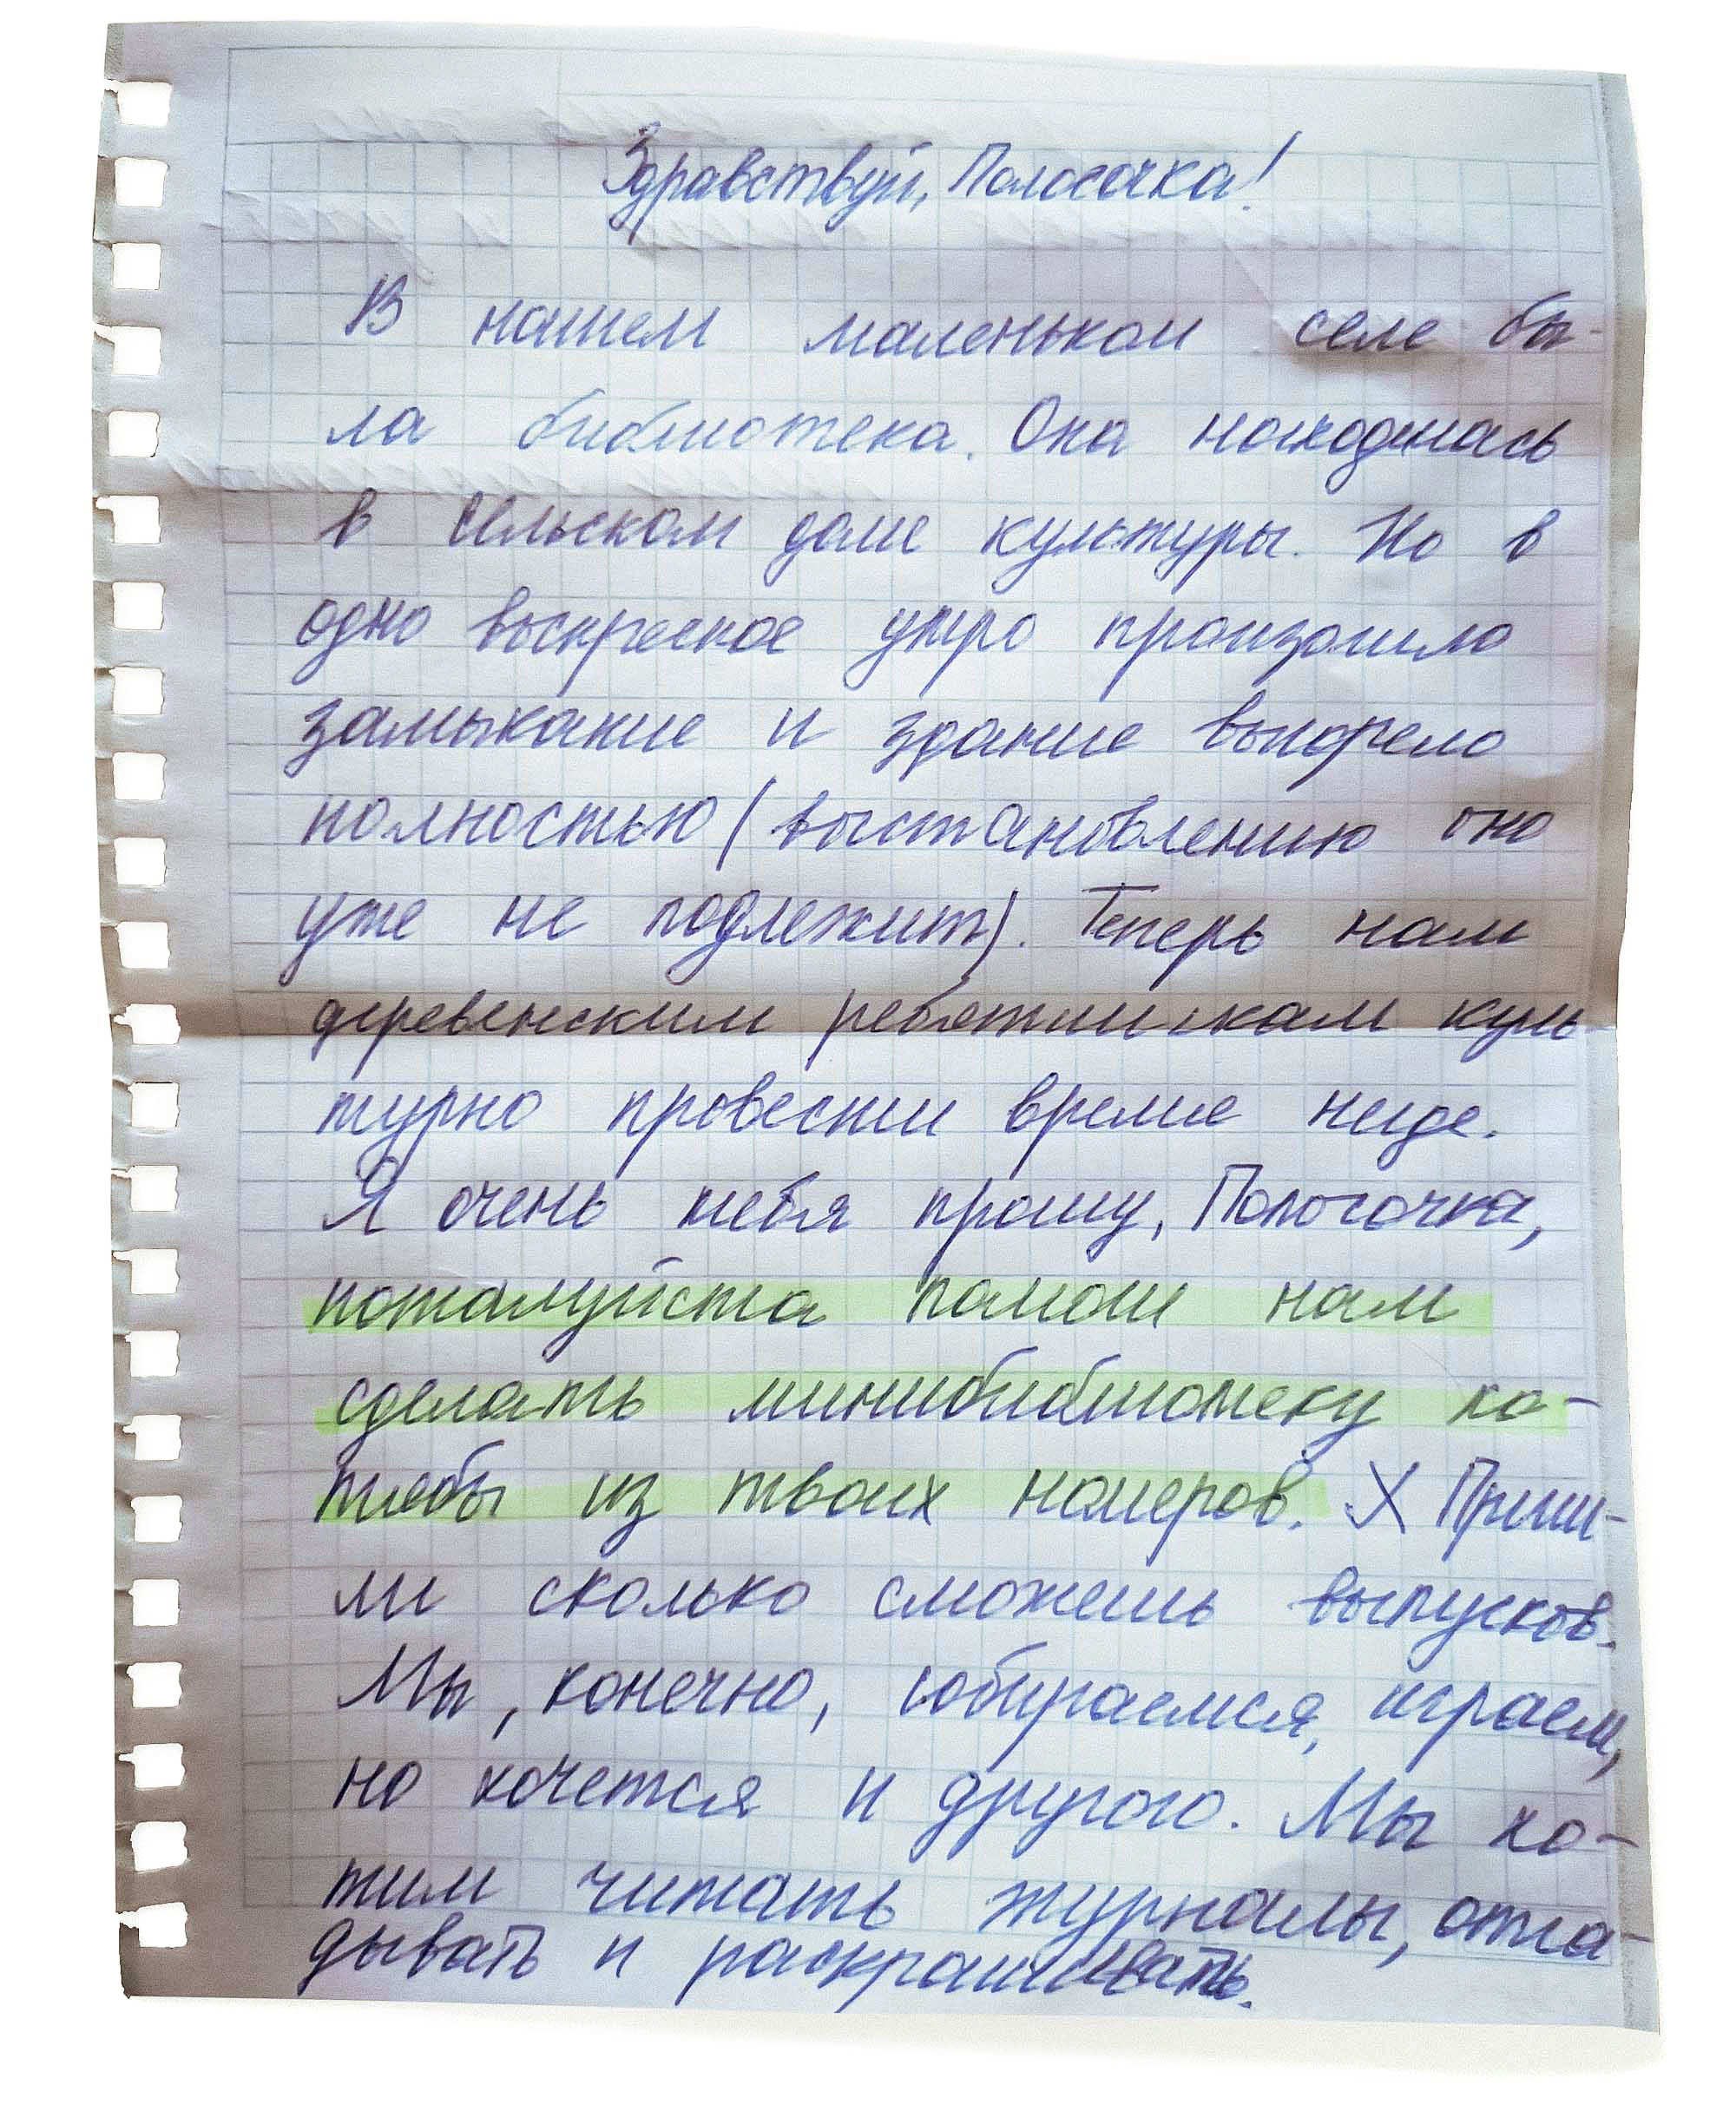 Здравствуй, Полосочка!
В нашем маленьком селе бы-
ла библиотека. Она находилась
в сельском доме культуры. Но в
одно воскресное утро произошло
замыкание и здание выгорело
полностью (высстановлению оно
уже не подлежит). Теперь нам
деревенским ребятишкам куль
турно провести время негде.
Я очень тебя прошу, Полосочка,
пожалуйста помош нам
сделать минибиблиотеку хо-
тябы из твоих номеров. X Приш-
ли сколько сможешь выпусков.
Мы, конечно, собираемся, играем,
но хочется и другого. Мы хо-
тим читать журналы, отга-
дывать и раскрашивать.